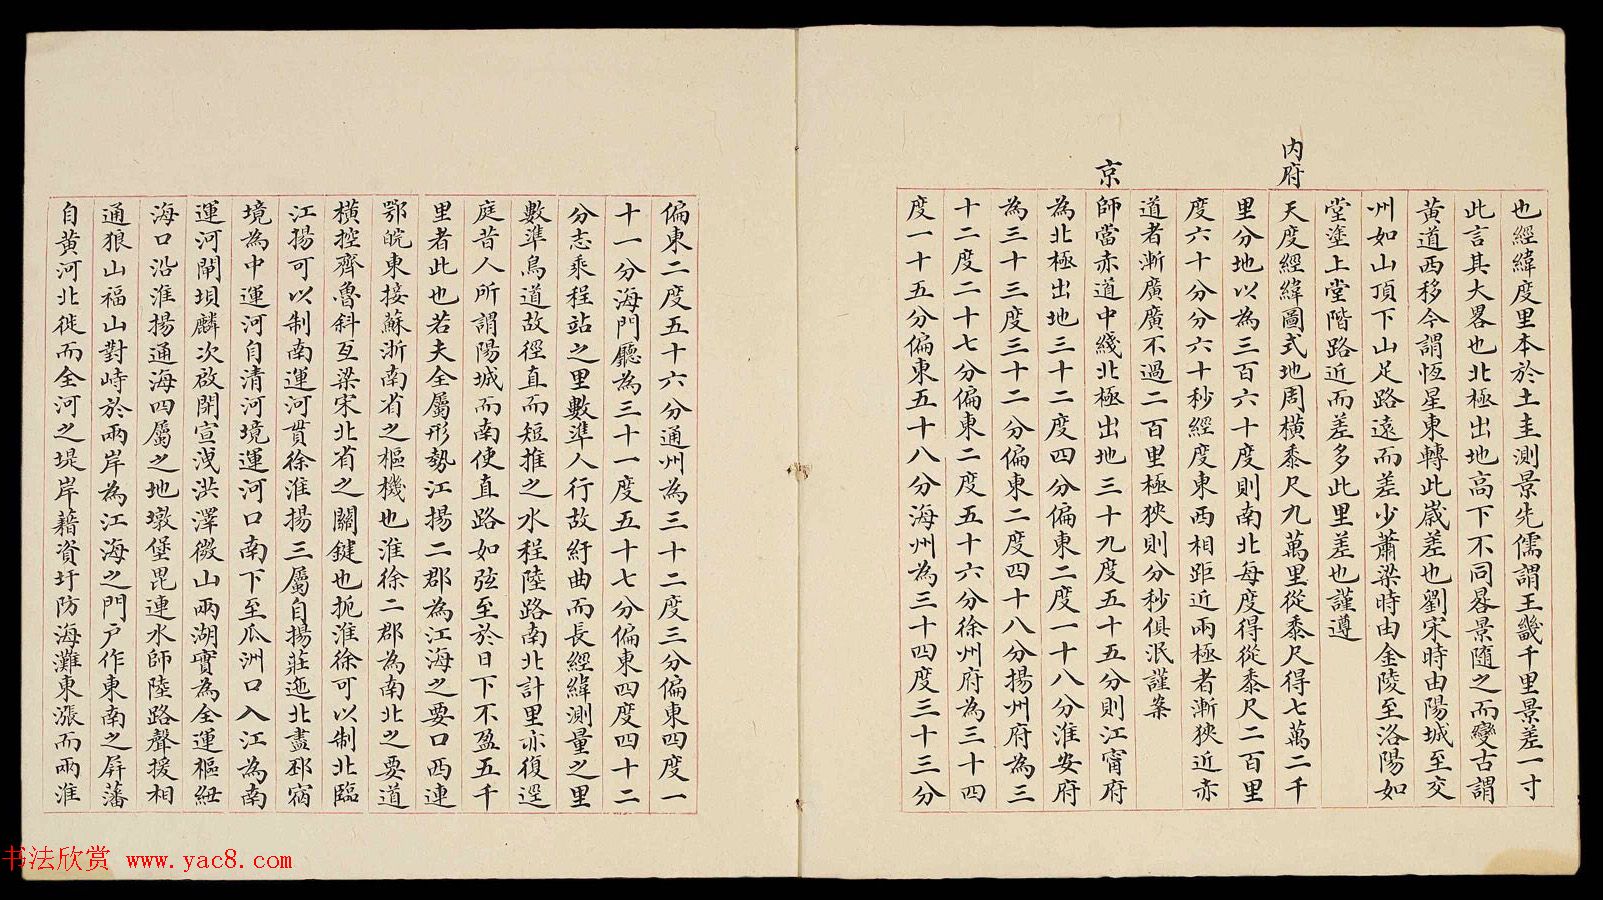 也經緯度里本於土圭測景先儒謂王畿千里景差一寸
此言其大畧也北極出地高下不同晷景隨之而變古謂
黃道西移今謂恆星東轉此歲差也劉宋時由陽城至交
州如山頂下山足路遠而差少蕭梁時由金陵至洛陽如
堂塗上堂階路近而差多此里差也謹遵
內府
天度經緯圖式地周橫黍尺九萬里從黍尺得七萬二千
里分地以為三百六十度則南北每度得從黍尺二百里
度六十分分六十秒經度東西相距近兩極者漸狹近赤
道者漸廣廣不過二百里極狹則分秒俱泯謹案
京
師當赤道中綫北極出地三十九度五十五分則江甯府
為北極出地三十二度四分偏東二度一十八分淮安府
為三十三度三十二分偏東二度四十八分揚州府為三
十二度二十七分偏東二度五十六分徐州府為三十四
度一十五分偏東五十八分海州為三十四度三十三分
偏東二度五十六分通州為三十二度三分偏東四度一
十一分海門廳為三十一度五十七分偏東四度四十二
分志乘程站之里數準人行故紆曲而長經緯測量之里
數準鳥道故徑直而短推之水程陸路南北計里亦復逕
庭昔人所謂陽城而南使直路如弦至於日下不盈五千
里者此也若夫全屬形勢江揚二郡為江海之要口西連
鄂皖東接蘇浙南省之樞機也淮徐二郡為南北之要道
橫控齊魯斜亙梁宋北省之關鍵也扼淮徐可以制北臨
江揚可以制南運河貫徐淮揚三屬自揚莊迤北盡邳宿
境為中運河自清河境運河口南下至瓜洲口入江為南
運河閘壩麟次啟閉宣洩洪澤微山兩湖實為全運樞紐
海口沿淮揚通海四屬之地墩堡毘連水師陸路聲援相
通狼山福山對峙於兩岸為江海之門戶作東南之屏藩
自黃河北徙而全河之堤岸藉資圩防海灘東漲而兩淮
书法欣赏 www.yac8.com